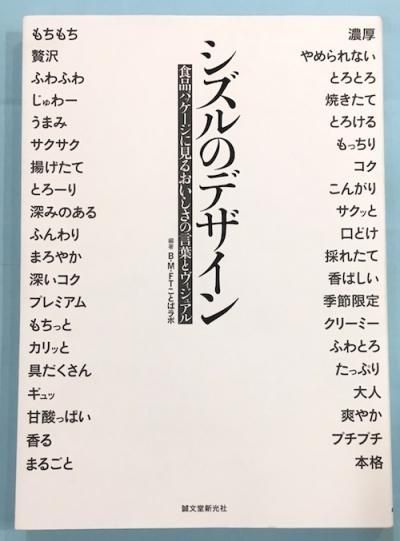 シズルのデザイン
食品パッケージに見るおいしさの言葉とヴィジュアル
編著 B・M・FTことばラボ
もちもち
贅沢
ふわふわ
じゅわー
うまみ
サクサク
揚げたて
とろーり
深みのある
ふんわり
まろやか
深いコク
プレミアム
もちっと
カリッと
具だくさん
ギュッ
甘酸っぱい
香る
まるごと
濃厚
やめられない
とろとろ
焼きたて
とろける
もっちり
コク
こんがり
サクッと
口どけ
採れたて
香ばしい
季節限定
クリーミー
ふわとろ
たっぷり
大人
爽やか
プチプチ
本格
誠文堂新光社